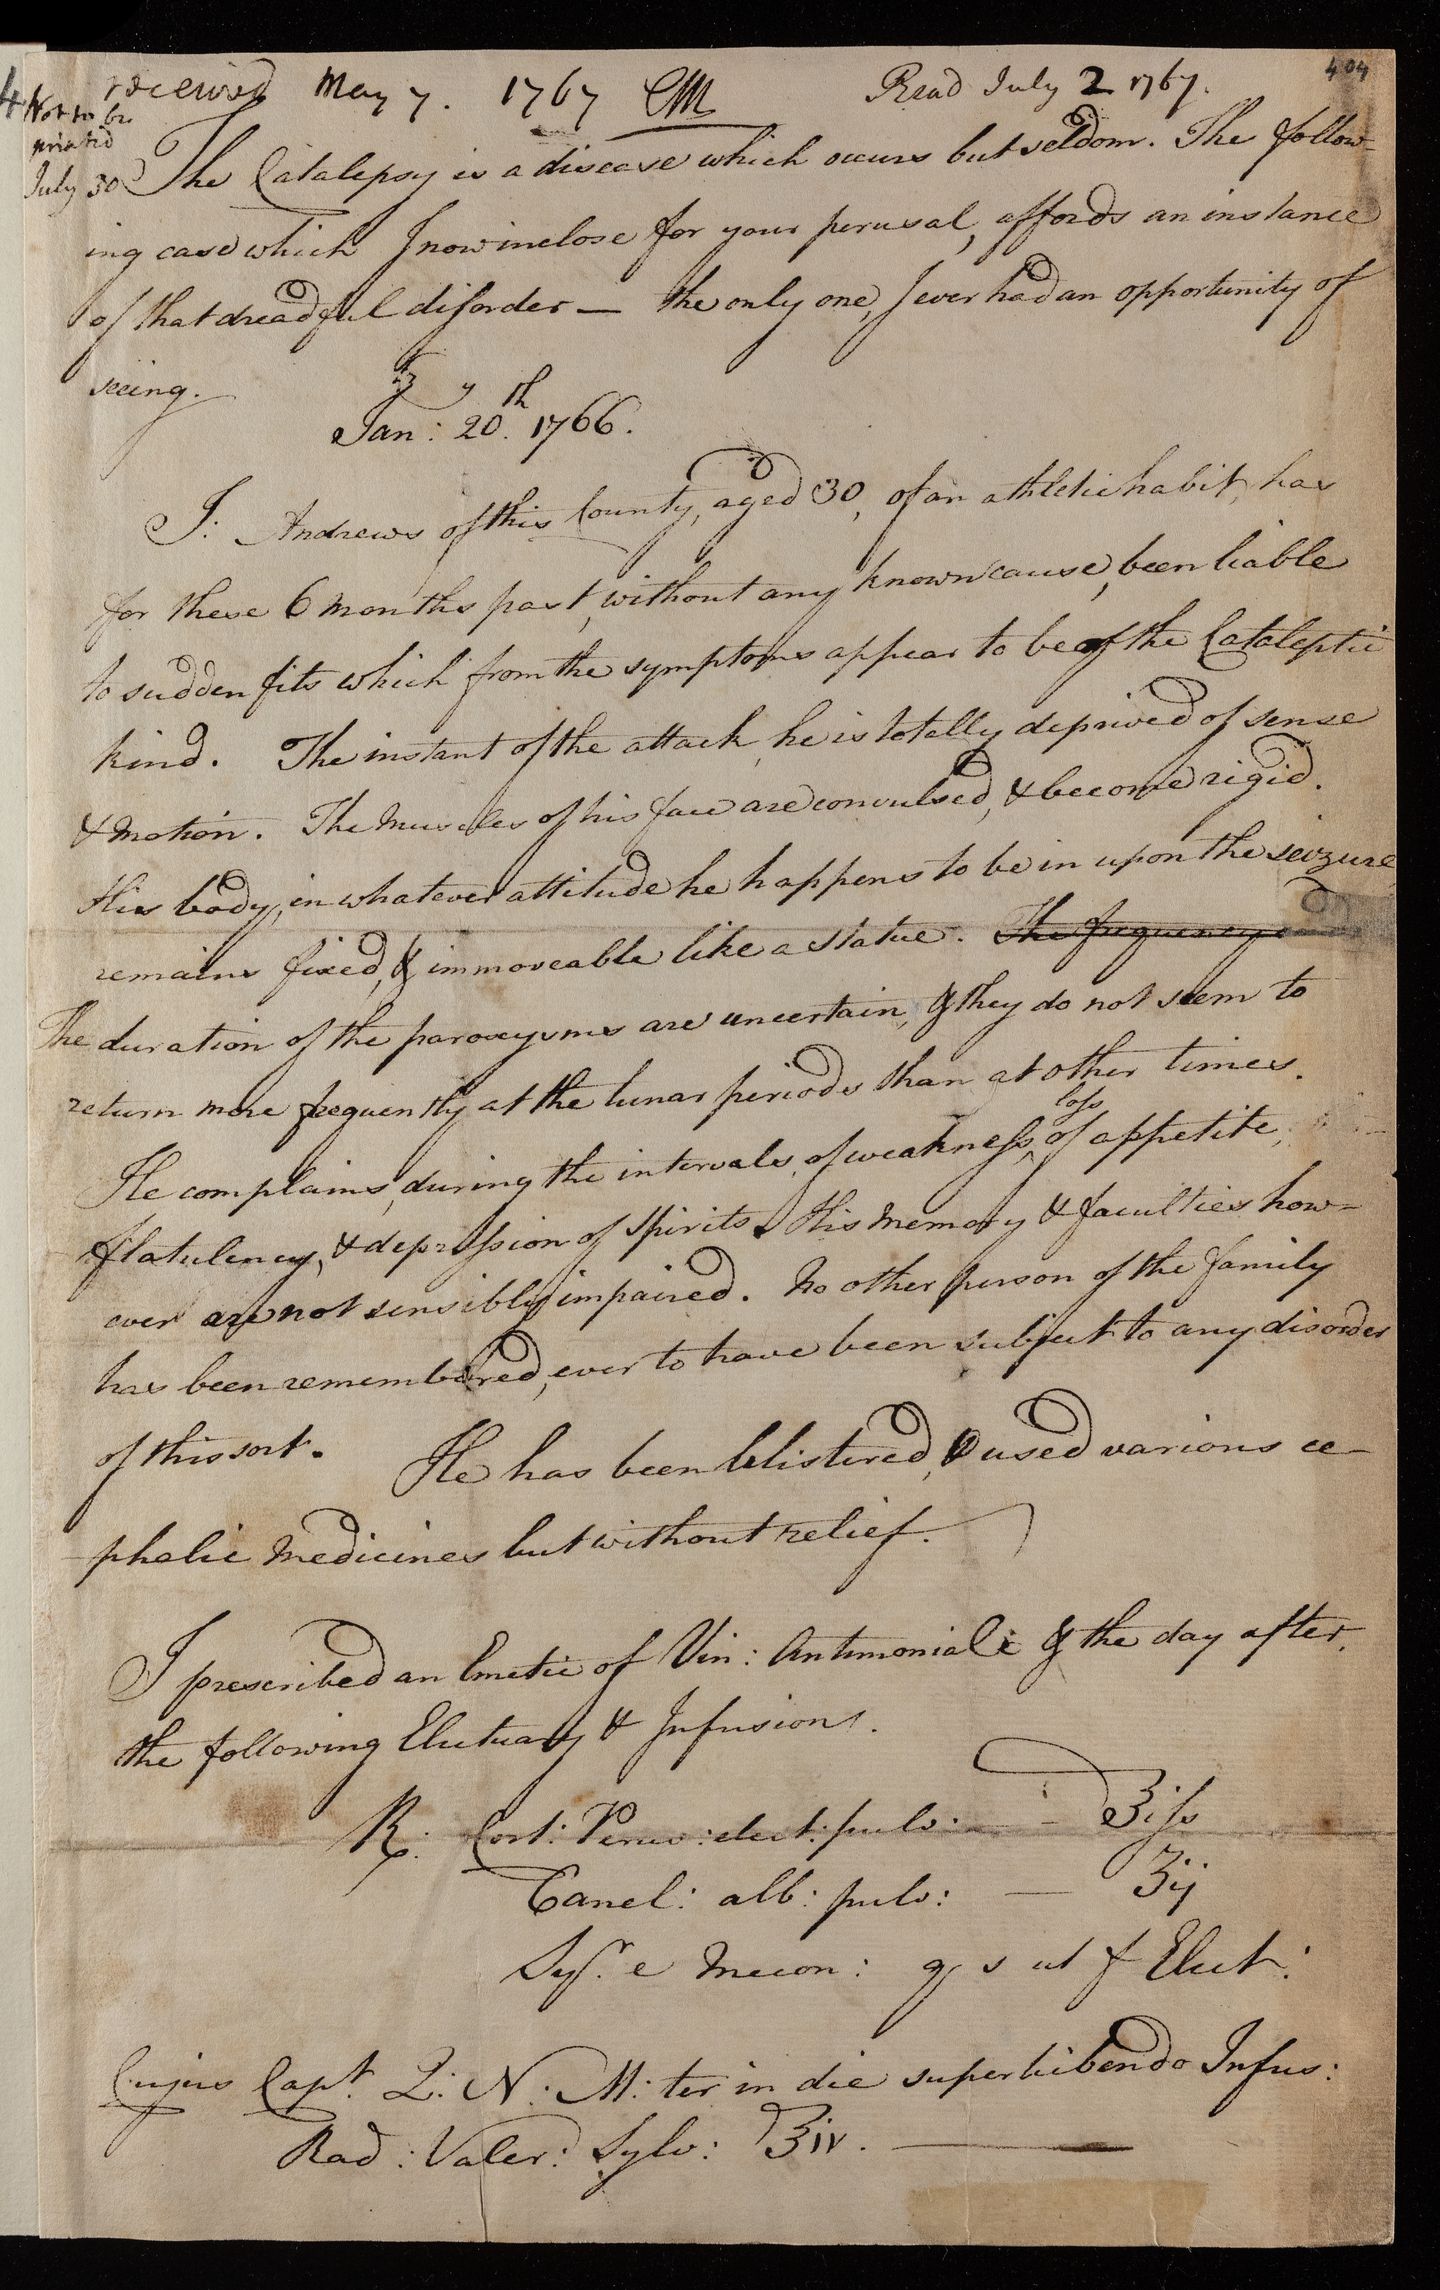 404
received May 7. 1767 CM
Read July 2 1767.
4
Not to be
printed
July 30
The Catalepsy is a disease which occurs but seldom. The follow-
ing case which I now inclose for your perusal, affords an instance
of that dreadful disorder — the only one, I ever had an opportunity of
seeing.
Jan: 20th. 1766.
J: Andrews of this County, aged 30, of an athletic habit, has
for these 6 months past, without any known cause, been liable
to sudden fits which from the symptoms appear to be of the Cataleptic
kind. The instant of the attack, he is totally deprived of sense
& motion. The Muscles of his face are convulsed, & become rigid.
His body, in whatever attitude he happens to be in upon the seizure,
remains fixed, & immoveable like a statue. The frequency
The duration of the paroxysms are uncertain, & they do not seem to
return more frequently at the lunar periods than at other times.
He complains, during the intervals, of weakness, loss of appetite,
flatulency, & depression of spirits. His Memory & faculties how-
ever are not sensibly impaired. No other person of the family
has been remembered, ever to have been subject to any disorder
of this sort. He has been blistered, & used various ce-
phalic Medicines but without relief.
I prescribed an Emetic of Vin: Antimoniale & the day after,
the following Electuary & Infusion.
℞. Cort: Peruv: elect: pulv: — ℥iſs
Canel: alb: pulv: — ʒij
Syr. e Mecon: q s ut f Elect:
Cujus Capt. Q: N: M: ter in die superbibendo Infus:
Rad: Valer: Sylv: ℥iv.